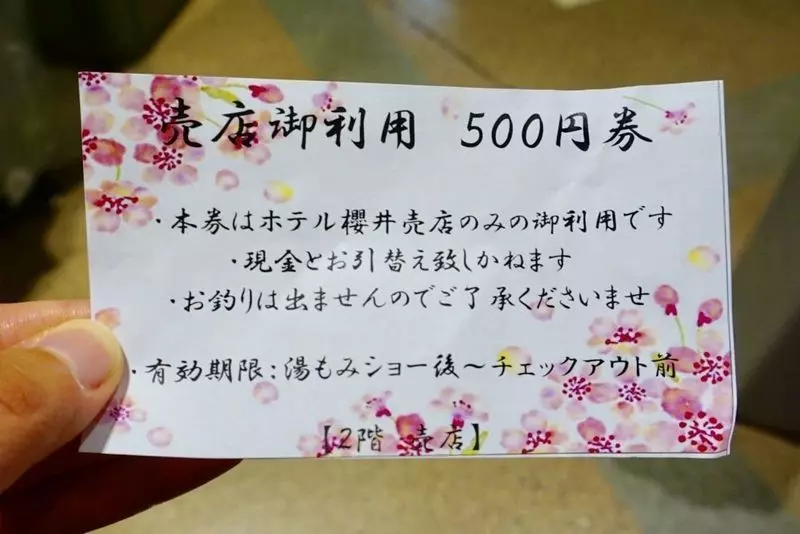 売店御利用 500円券
・本券はホテル櫻井売店のみの御利用です
・現金とお引替え致しかねます
・お釣りは出ませんのでご了承くださいませ
・有効期限:湯もみショー後～チェックアウト前
【2階 売店】